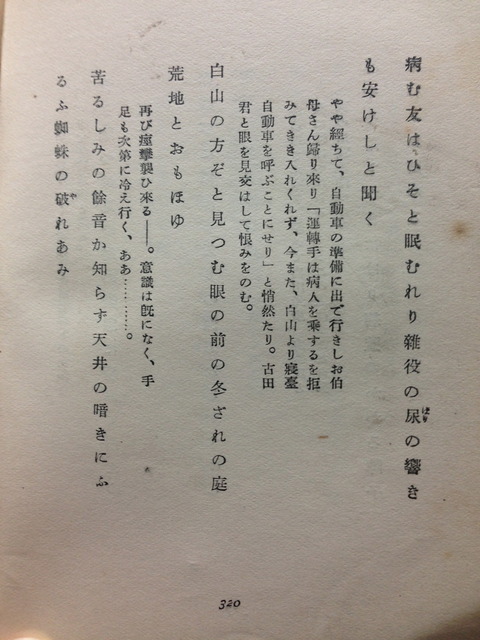 病む友はひそと眠むれり雜役の尿の響き
も安けしと聞く
やや經ちて、自動車の準備に出で行きしお伯
母さん歸り來り「運轉手は病人を乘するを拒
みてきき入れくれず、今また、白山より寢臺
自動車を呼ぶことにせり」と悄然たり。古田
君と眼を見交はして恨みをのむ。
白山の方ぞと見つむ眼の前の冬されの庭
荒地とおもほゆ
再び痙攣襲ひ來る――。意識は既になく、手
足も次第に冷え行く、ああ…………。
苦るしみの餘音か知らず天井の暗きにふ
るふ蜘蛛の破れあみ
320